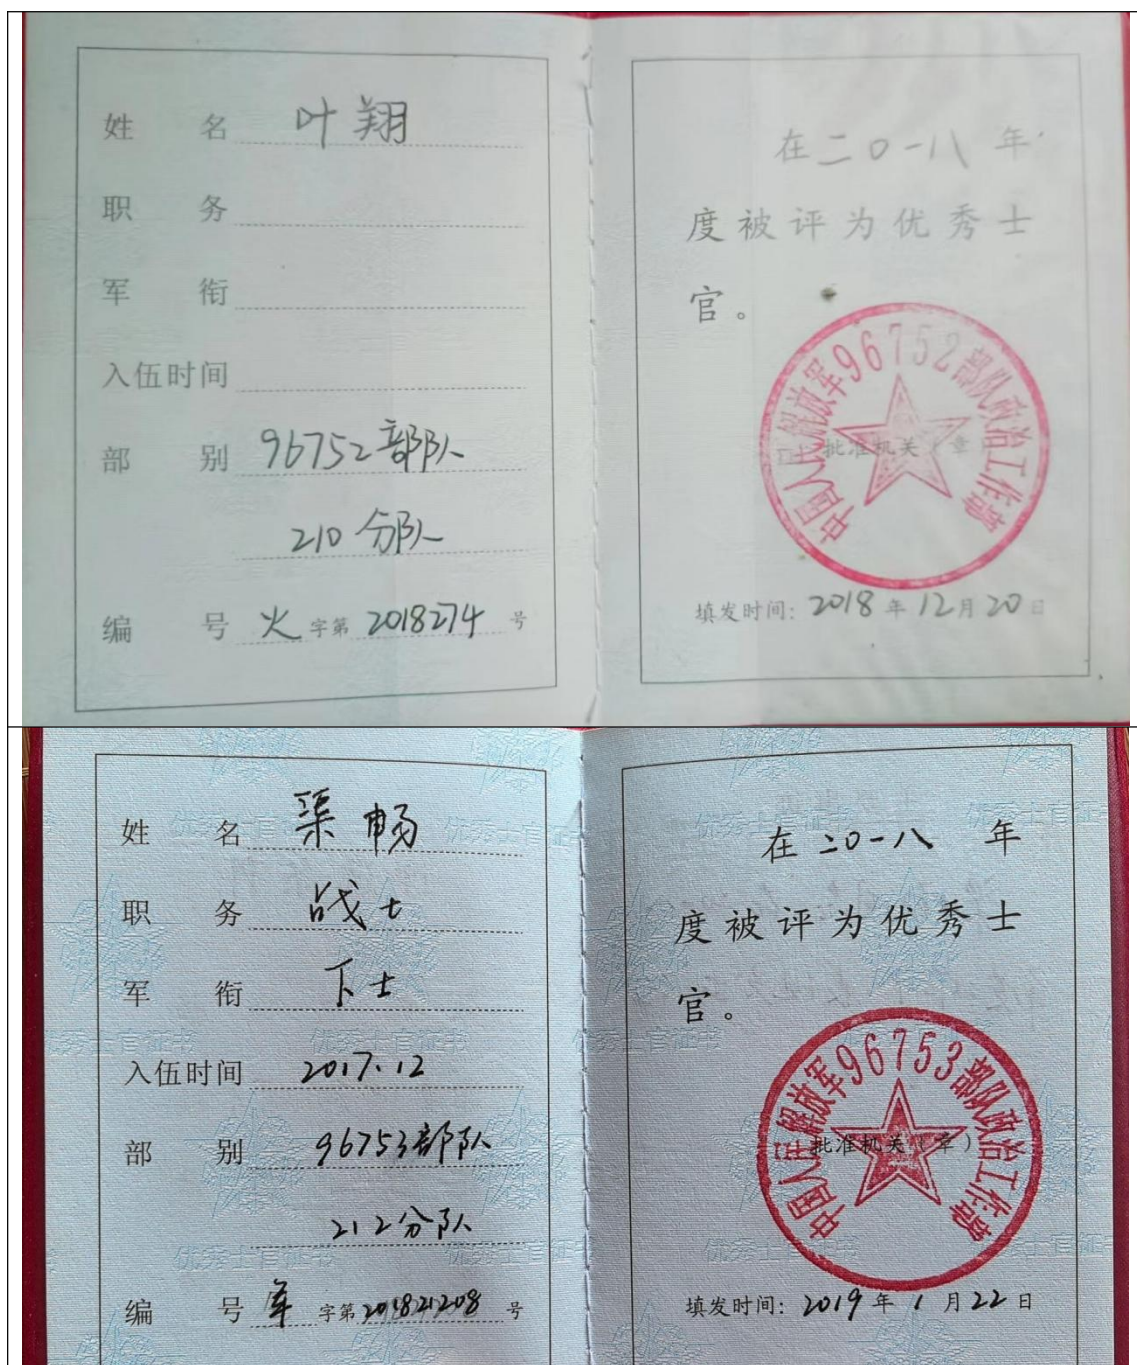 姓 名 叶翔
职 务
军 衔
入伍时间
部 别 96752部队
210分队
编 号 火 字第 2018274 号
在二0一八 年
度被评为优秀士
官。
中国人民解放军96752部队政治工作部
批准机关(章)
填发时间: 2018 年 12 月 20 日
姓 名 渠畅
职 务 战士
军 衔 下士
入伍时间 2017.12
部 别 96753部队
212分队
编 号 军 字第 201821208 号
在 二0一八 年
度被评为优秀士
官。
中国人民解放军96753部队政治工作部
批准机关(章)
填发时间: 2019 年 1 月 22 日
优秀士官证书